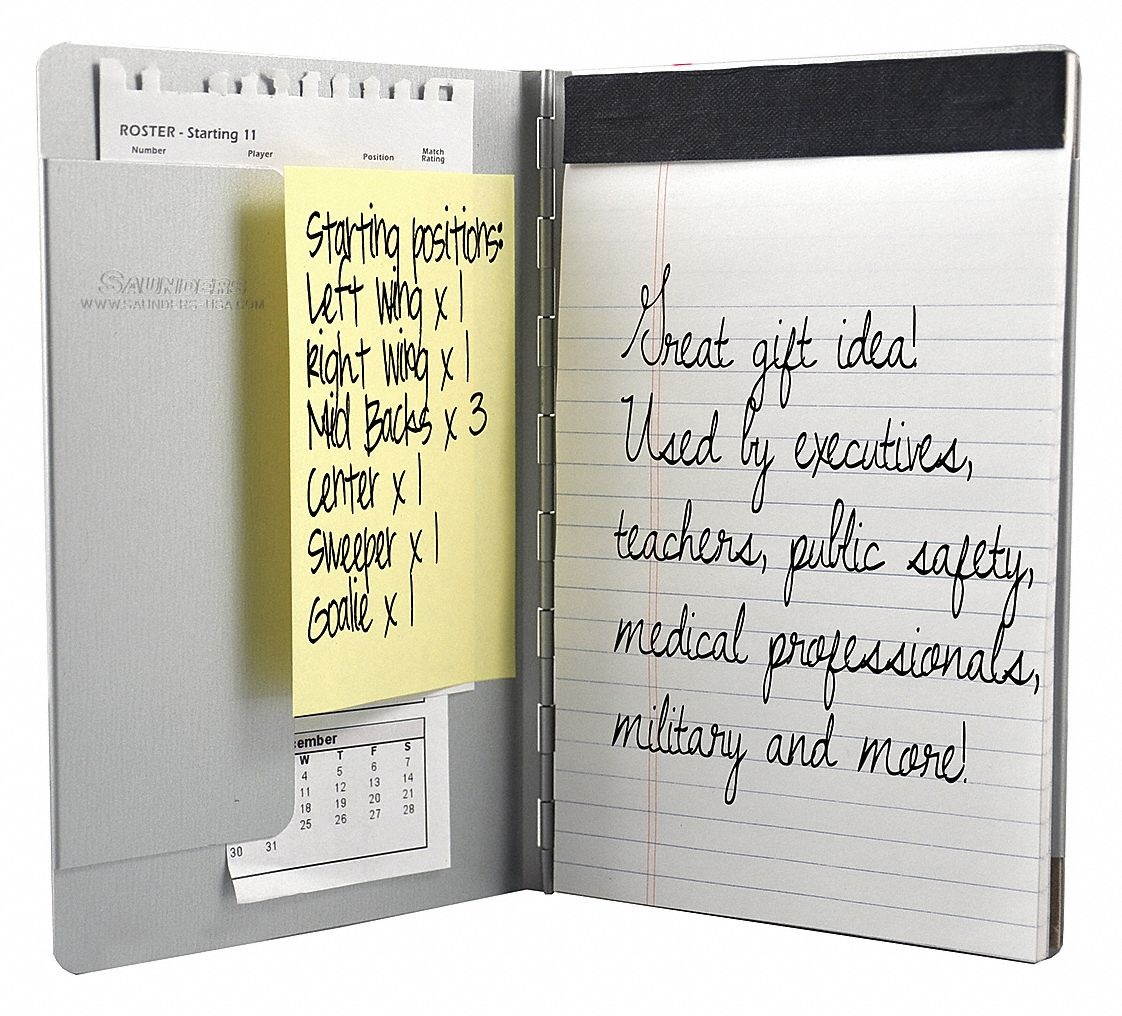 ROSTER - Starting 11
Number Player Position Match Rating
SAUNDERS
WWW.SAUNDERS-USA.COM
Starting positions:
Left Wing x 1
Right Wing x 1
Mid Backs x 3
Center x 1
Sweeper x 1
Goalie x 1
cember
W T F S
4 5 6 7
11 12 13 14
18 19 20 21
25 26 27 28
30 31
Great gift idea!
Used by executives,
teachers, public safety,
medical professionals,
military and more!